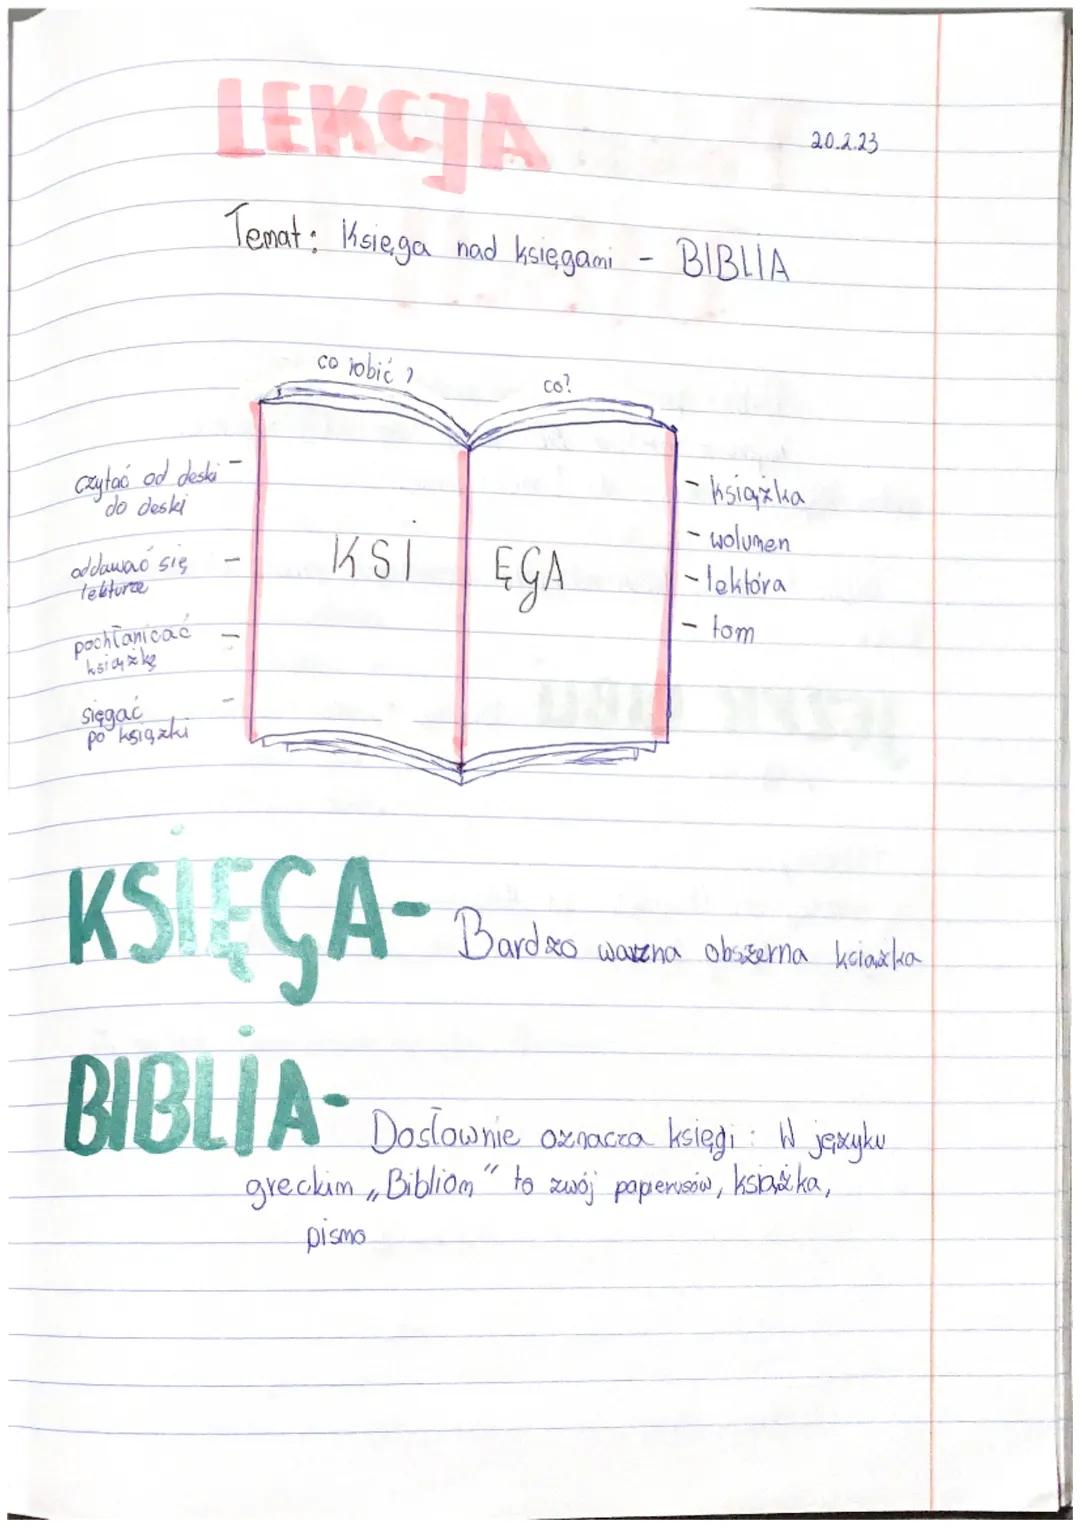 LEKCJA
20.2.23
Temat: Księga nad księgami - BIBLIA
co robić?
co?
czytać od deski -
do deski
oddawać się -
lekturze
pochłanicać -
książkę
sięgać -
po książki
KSI
ĘGA
- książka
- wolumen
- lektóra
- tom
KSIĘGA- Bardzo ważna obszerna ksiażka
BIBLIA- Dosłownie oznacza księgi: W języku
greckim „Bibliom" to zwój papierusów, książka,
pismo